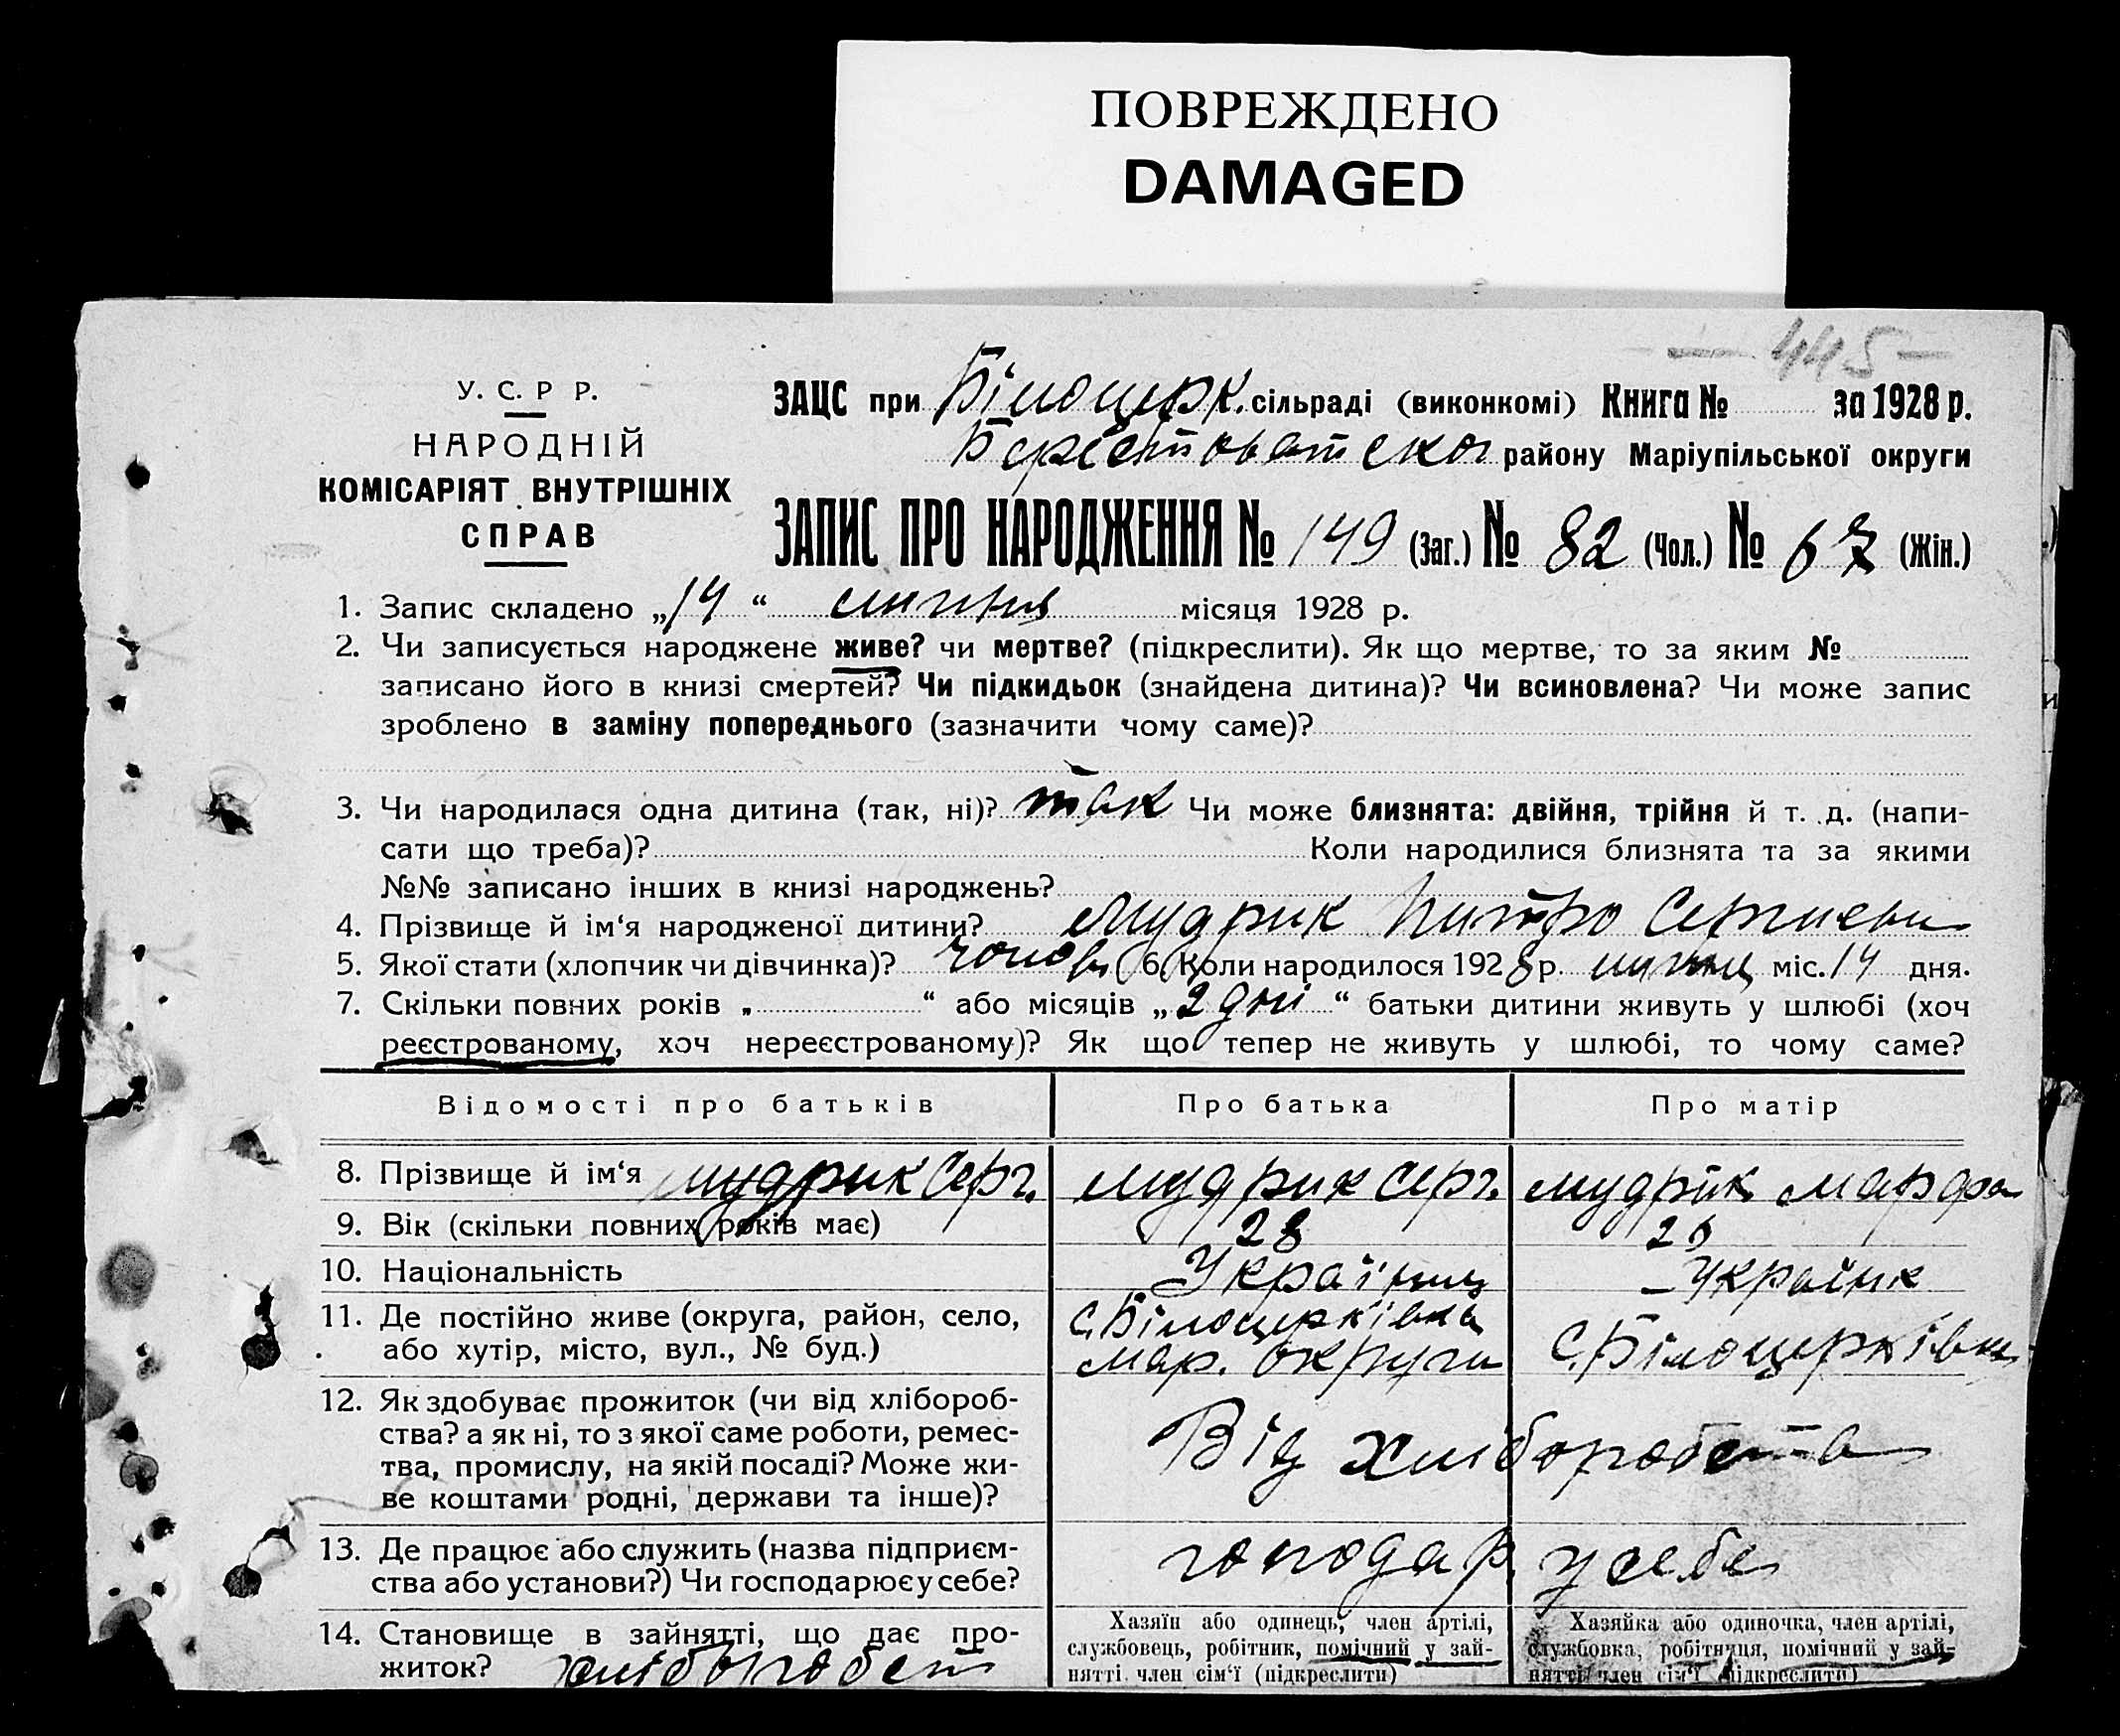 ПОВРЕЖДЕНО
DAMAGED
— 445 —
У. С. Р Р.
НАРОДНІЙ
КОМІСАРІЯТ ВНУТРІШНІХ
СПРАВ
ЗАЦС при Білоцерк. сільраді (виконкомі) Книга № за 1928 р.
району Маріупільської округи
ЗАПИС ПРО НАРОДЖЕННЯ № 149 (Заг.) № 82 (Чол.) № 67 (Жін.)
1. Запис складено „14“ липня місяця 1928 р.
2. Чи записується народжене живе? чи мертве? (підкреслити). Як що мертве, то за яким №
записано його в книзі смертей? Чи підкидьок (знайдена дитина)? Чи всиновлена? Чи може запис
зроблено в заміну попереднього (зазначити чому саме)?
3. Чи народилася одна дитина (так, ні)? так Чи може близнята: двійня, трійня й т. д. (напи-
сати що треба)? Коли народилися близнята та за якими
№№ записано інших в книзі народжень?
4. Прізвище й ім‘я народженої дитини? Мудрик
5. Якої стати (хлопчик чи дівчинка)? 6. Коли народилося 1928 р. міс. 14 дня.
7. Скільки повних років „ “ або місяців „2 дні“ батьки дитини живуть у шлюбі (хоч
реєстрованому, хоч нереєстрованому)? Як що тепер не живуть у шлюбі, то чому саме?
Відомості про батьків Про батька Про матір
8. Прізвище й ім‘я Мудрик Серг. Мудрик Серг. Мудрик Марфа
9. Вік (скільки повних років має) 28
10. Національність Українц — Українк
11. Де постійно живе (округа, район, село,
або хутір, місто, вул., № буд.)
с. Білоцерківка
мар. округи
с. Білоцерківка
12. Як здобуває прожиток (чи від хлібороб-
ства? а як ні, то з якої саме роботи, ремес-
тва, промислу, на якій посаді? Може жи-
ве коштами родні, держави та інше)?
Від хліборобства
13. Де працює або служить (назва підприєм-
ства або установи?) Чи господарює у себе?
у себе
14. Становище в зайнятті, що дає про-
житок? хліборобст
Хазяїн або одинець, член артілі,
службовець, робітник, помічний у зай-
нятті член сім‘ї (підкреслити)
Хазяйка або одиночка, член артілі,
службовка, робітниця, помічний у зай-
нятті член сім‘ї (підкреслити)